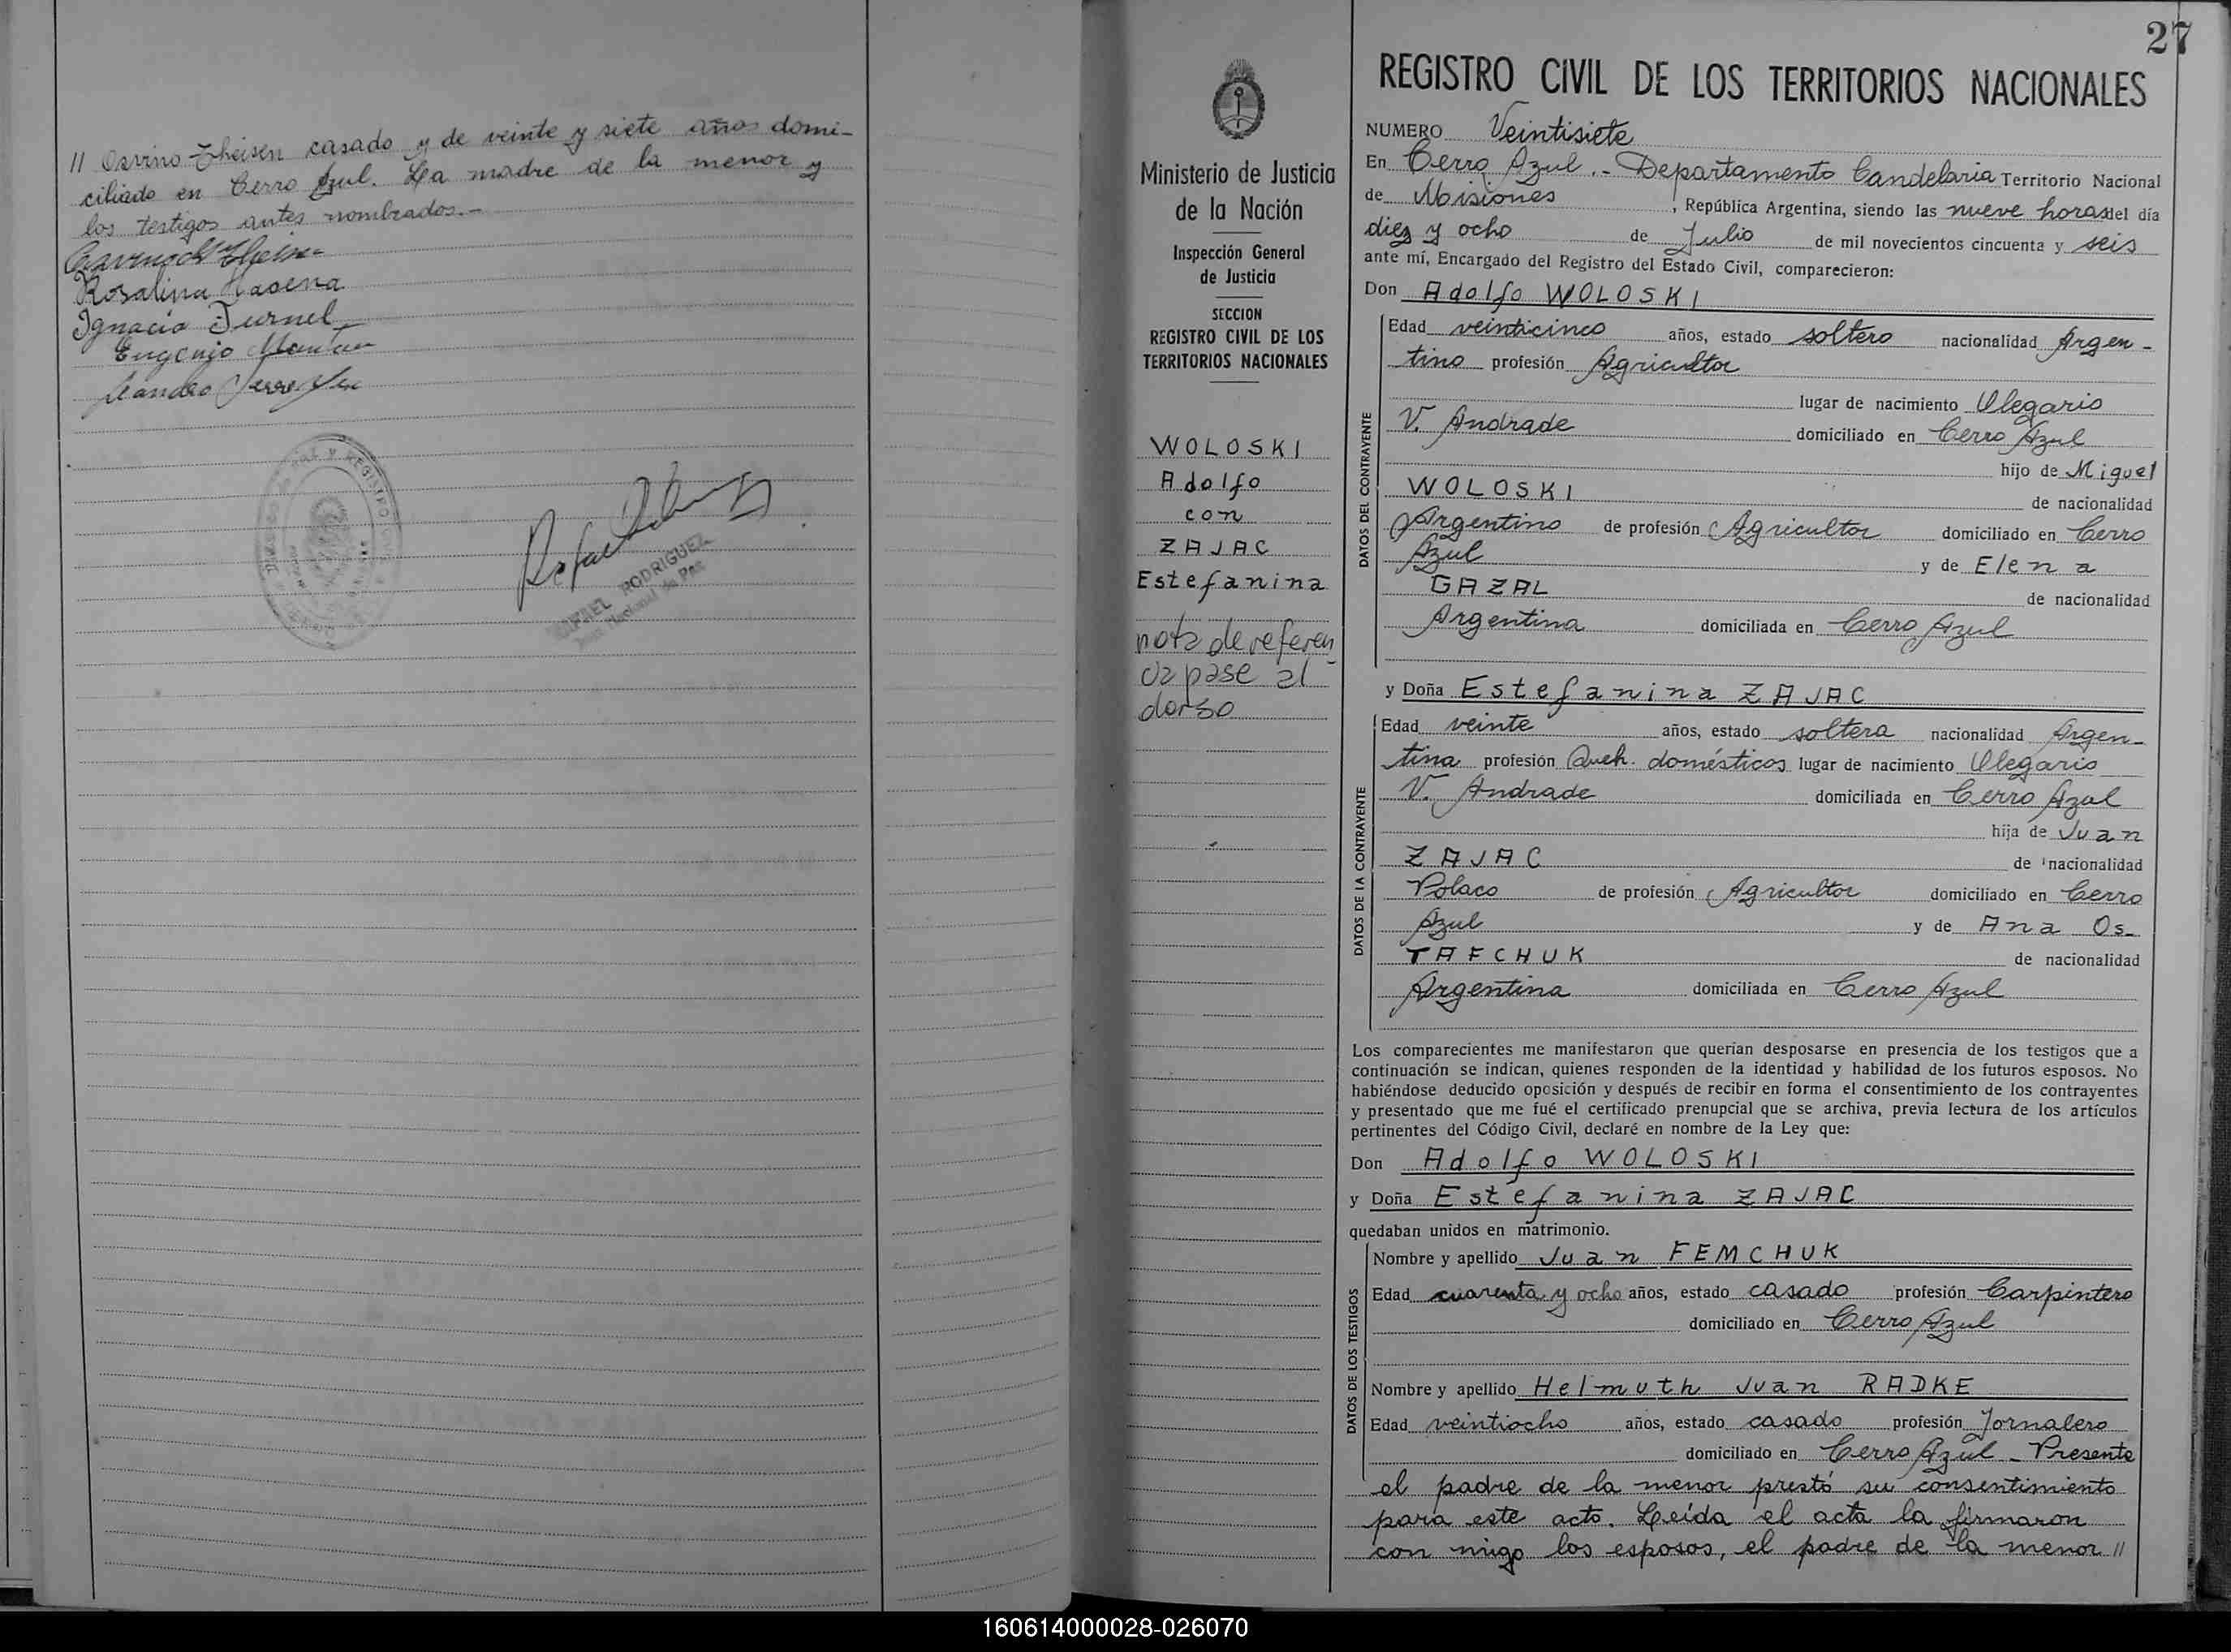 // Osvino Theisen casado y de veinte y siete años domi-
ciliado en Cerro Azul. La madre de la menor y
los testigos antes nombrados.-
Rosalina
Ignacio
Eugenio
RAFAEL RODRIGUEZ
Juez Nacional de Paz
27
REGISTRO CIVIL DE LOS TERRITORIOS NACIONALES
Ministerio de Justicia
de la Nación
Inspección General
de Justicia
SECCION
REGISTRO CIVIL DE LOS
TERRITORIOS NACIONALES
WOLOSKI
Adolfo
con
ZAJAC
Estefanina
nota de referen
cia pase al
dorso
NUMERO Veintisiete
En Cerro Azul.- Departamento Candelaria Territorio Nacional
de Misiones, República Argentina, siendo las nueve horas del día
diez y ocho de Julio de mil novecientos cincuenta y seis
ante mí, Encargado del Registro del Estado Civil, comparecieron:
Don Adolfo WOLOSKI
DATOS DEL CONTRAYENTE
Edad veinticinco años, estado soltero nacionalidad Argen-
tino profesión Agricultor
lugar de nacimiento Olegario
V. Andrade domiciliado en Cerro Azul
hijo de Miguel
WOLOSKI de nacionalidad
Argentino de profesión Agricultor domiciliado en Cerro
Azul y de Elena
GAZAL de nacionalidad
Argentina domiciliada en Cerro Azul
y Doña Estefanina ZAJAC
DATOS DE LA CONTRAYENTE
Edad veinte años, estado soltera nacionalidad Argen-
tina profesión Queh. domésticos lugar de nacimiento Olegario
V. Andrade domiciliada en Cerro Azul
hija de Juan
ZAJAC de nacionalidad
Polaco de profesión Agricultor domiciliado en Cerro
Azul y de Ana Os-
TAFCHUK de nacionalidad
Argentina domiciliada en Cerro Azul
Los comparecientes me manifestaron que querían desposarse en presencia de los testigos que a
continuación se indican, quienes responden de la identidad y habilidad de los futuros esposos. No
habiéndose deducido oposición y después de recibir en forma el consentimiento de los contrayentes
y presentado que me fué el certificado prenupcial que se archiva, previa lectura de los artículos
pertinentes del Código Civil, declaré en nombre de la Ley que:
Don Adolfo WOLOSKI
y Doña Estefanina ZAJAC
quedaban unidos en matrimonio.
DATOS DE LOS TESTIGOS
Nombre y apellido Juan FEMCHUK
Edad cuarenta y ocho años, estado casado profesión Carpintero
domiciliado en Cerro Azul
Nombre y apellido Helmuth Juan RADKE
Edad veintiocho años, estado casado profesión Jornalero
domiciliado en Cerro Azul - Presente
el padre de la menor prestó su consentimiento
para este acto. Leída el acta la firmaron
con migo los esposos, el padre de la menor //
160614000028-026070